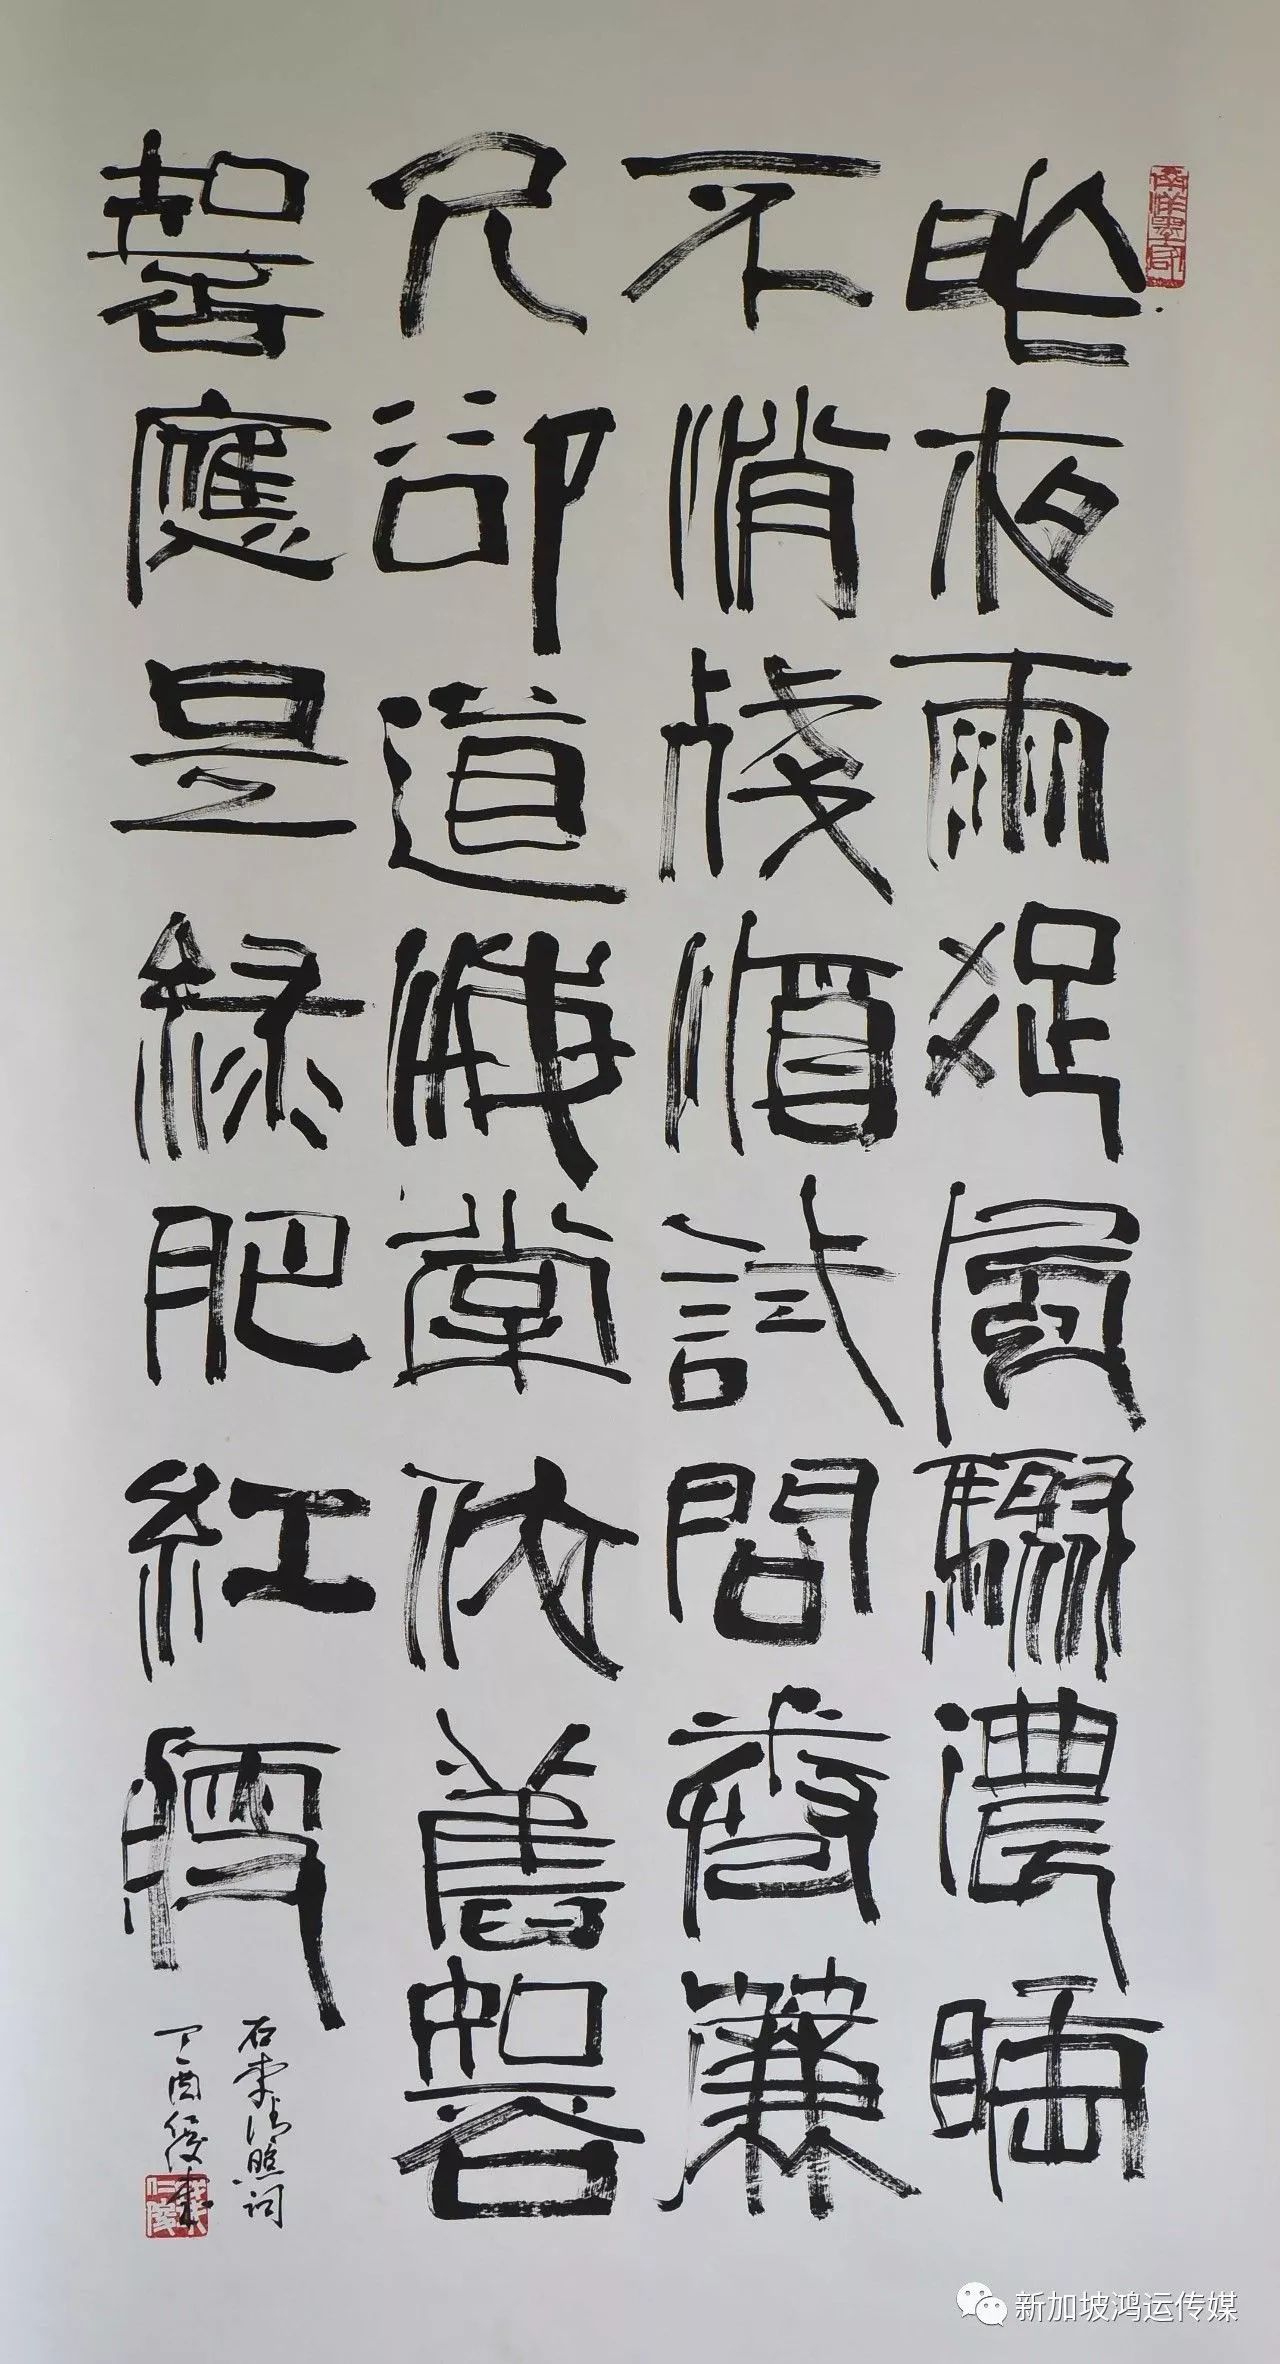 昨夜雨疏風驟濃睡
不消殘酒試問卷簾
人卻道海棠依舊知否
知否應是綠肥紅瘦
右李清照词
丁酉
新加坡鸿运传媒